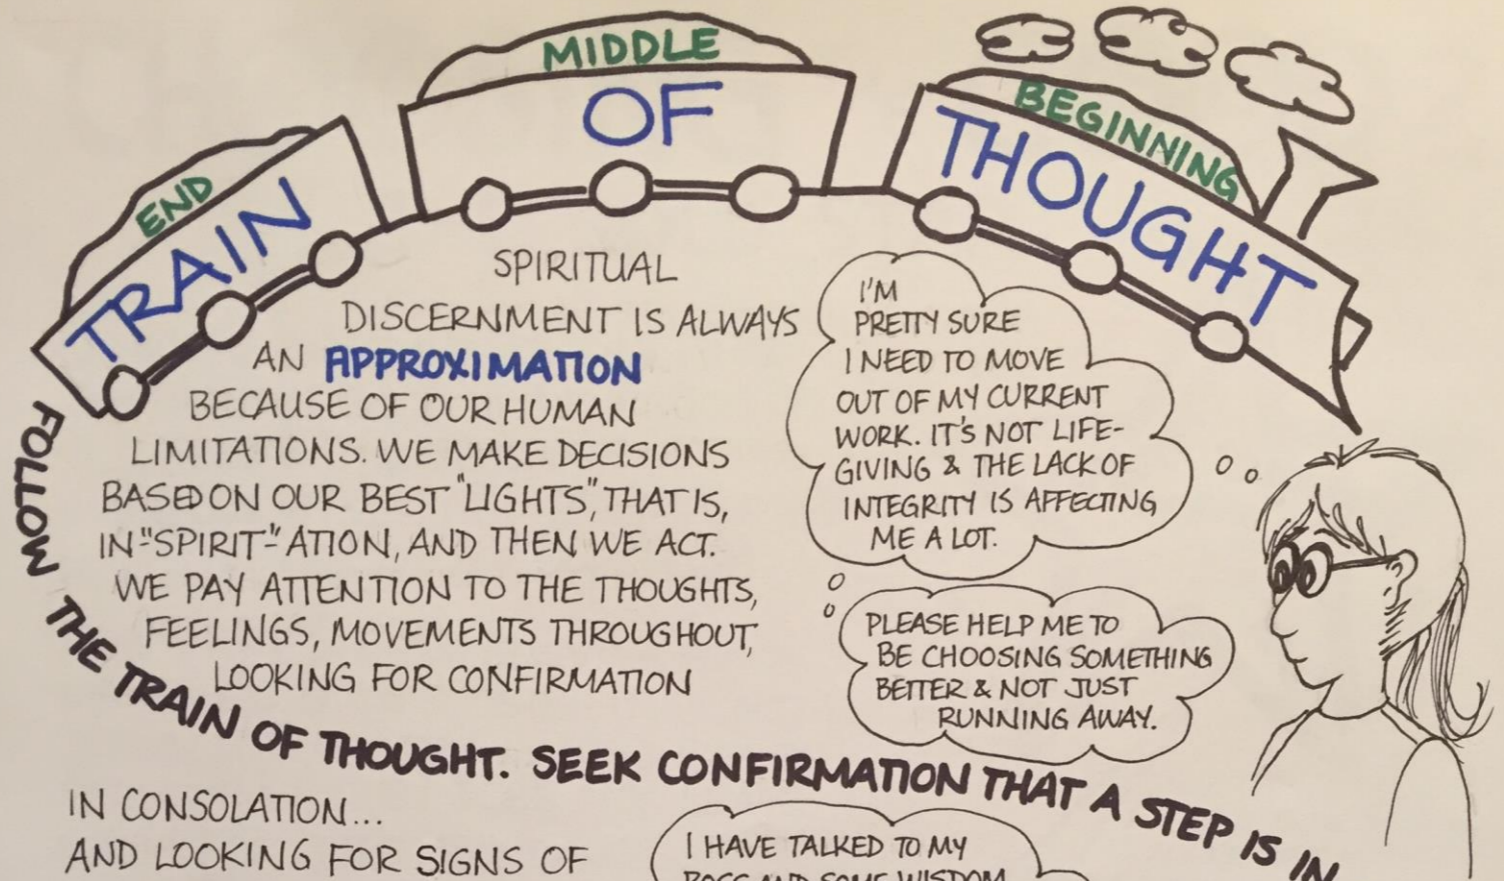 END
MIDDLE
BEGINNING
TRAIN
OF
THOUGHT
SPIRITUAL
DISCERNMENT IS ALWAYS
AN APPROXIMATION
BECAUSE OF OUR HUMAN
LIMITATIONS. WE MAKE DECISIONS
BASED ON OUR BEST "LIGHTS", THAT IS,
IN-"SPIRIT-"ATION, AND THEN WE ACT.
WE PAY ATTENTION TO THE THOUGHTS,
FEELINGS, MOVEMENTS THROUGHOUT,
LOOKING FOR CONFIRMATION
I'M
PRETTY SURE
I NEED TO MOVE
OUT OF MY CURRENT
WORK. IT'S NOT LIFE-
GIVING & THE LACK OF
INTEGRITY IS AFFECTING
ME A LOT.
PLEASE HELP ME TO
BE CHOOSING SOMETHING
BETTER & NOT JUST
RUNNING AWAY.
FOLLOW THE TRAIN OF THOUGHT. SEEK CONFIRMATION THAT A STEP IS IN
IN CONSOLATION...
AND LOOKING FOR SIGNS OF
I HAVE TALKED TO MY
BOSS AND SOME WISDOM